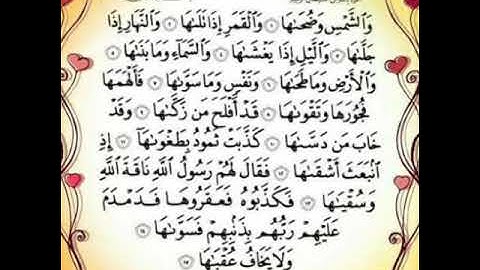 وَٱلشَّمْسِ وَضُحَىٰهَا ١ وَٱلْقَمَرِ إِذَا تَلَىٰهَا ٢ وَٱلنَّهَارِ إِذَا
جَلَّىٰهَا ٣ وَٱلَّيْلِ إِذَا يَغْشَىٰهَا ٤ وَٱلسَّمَآءِ وَمَا بَنَىٰهَا ٥
وَٱلْأَرْضِ وَمَا طَحَىٰهَا ٦ وَنَفْسٍ وَمَا سَوَّىٰهَا ٧ فَأَلْهَمَهَا
فُجُورَهَا وَتَقْوَىٰهَا ٨ قَدْ أَفْلَحَ مَن زَكَّىٰهَا ٩ وَقَدْ
خَابَ مَن دَسَّىٰهَا ١٠ كَذَّبَتْ ثَمُودُ بِطَغْوَىٰهَآ ١١ إِذِ
ٱنۢبَعَثَ أَشْقَىٰهَا ١٢ فَقَالَ لَهُمْ رَسُولُ ٱللَّهِ نَاقَةَ ٱللَّهِ
وَسُقْيَىٰهَا ١٣ فَكَذَّبُوهُ فَعَقَرُوهَا فَدَمْدَمَ
عَلَيْهِمْ رَبُّهُم بِذَنۢبِهِمْ فَسَوَّىٰهَا ١٤
وَلَا يَخَافُ عُقْبَىٰهَا ١٥